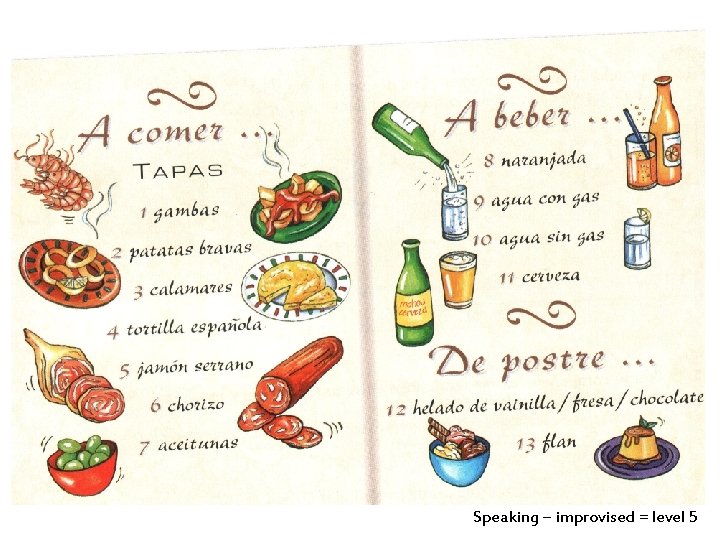 A comer ...
TAPAS
1 gambas
2 patatas bravas
3 calamares
4 tortilla española
5 jamón serrano
6 chorizo
7 aceitunas
A beber ...
8 naranjada
9 agua con gas
10 agua sin gas
11 cerveza
mahou
cerveza
De postre ...
12 helado de vainilla / fresa / chocolate
13 flan
Speaking – improvised = level 5